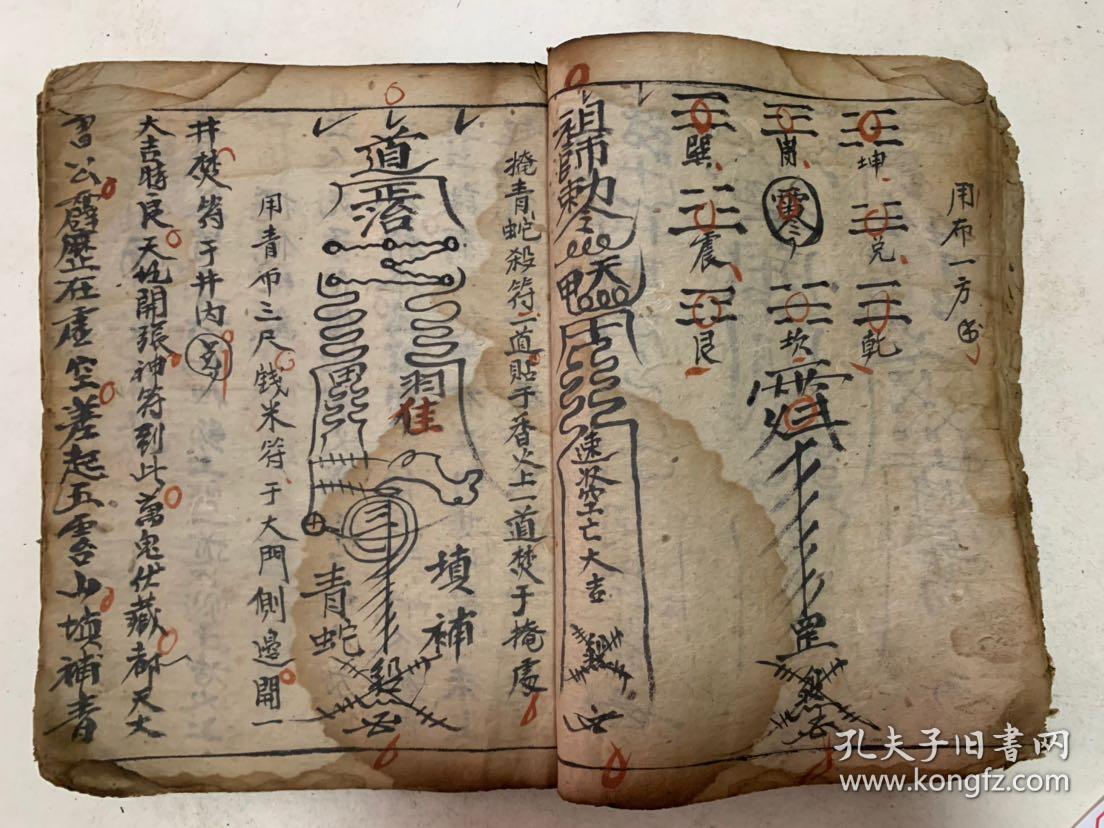 用布一方
坤
兑
乾
雷令
坎
罡
煞
巽
震
艮
祖師勅令
天
速
空亡大吉
煞
掩青蛇殺符二道貼于香火上一道焚于掩處
道
羽
佳
填補
青蛇
煞
用青布三尺錢米符于大門側邊開一
井焚符于井内
大吉時良天地開張神符到此萬鬼伏藏都天大
雷公霹歷在虛空差起五雷山填補青
孔夫子旧書网
www.kongfz.com